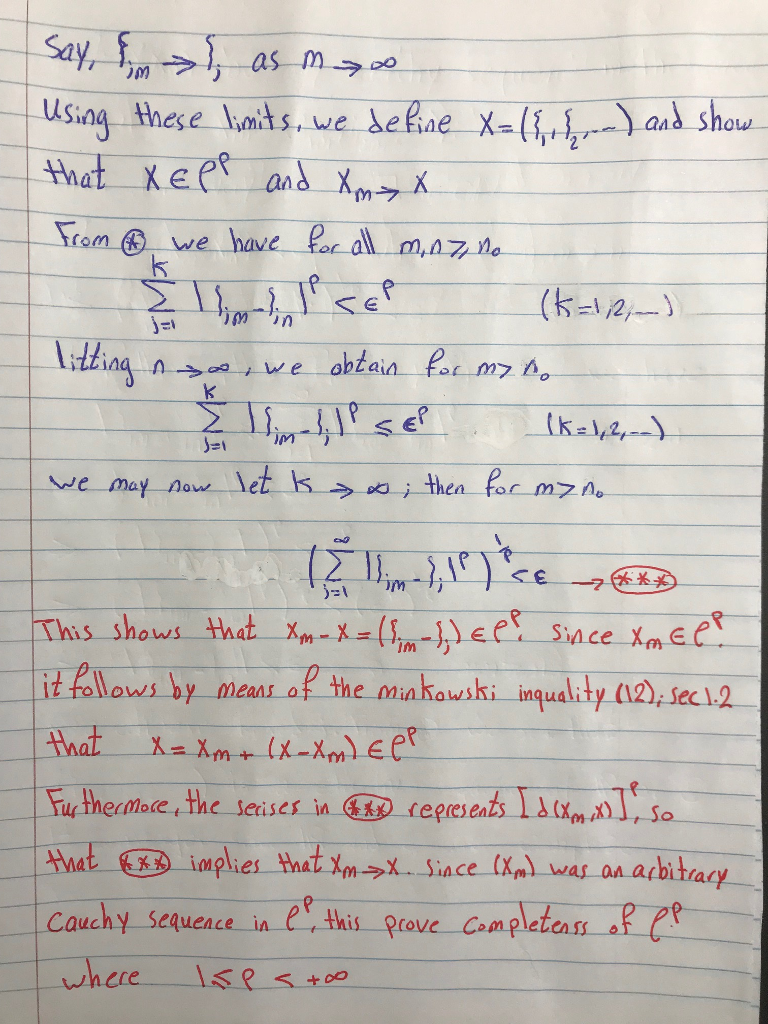 Say, ξ_jm → ξ_j as m → ∞
Using these limits, we define X = (ξ_1, ξ_2, ...) and show
that X ∈ ℓ^p and X_m → X
From ⊛ we have for all m,n ≥ n_o
∑_{j=1}^{K} |ξ_jm - ξ_jn|^p < ϵ^p (K=1,2,...)
litting n → ∞, we obtain for m > n_o
∑_{j=1}^{K} |ξ_jm - ξ_j|^p ≤ ϵ^p (K=1,2,...)
we may now let K → ∞; then for m > n_o
(∑_{j=1}^{∞} |ξ_jm - ξ_j|^p)^{1/p} < ϵ → (***)
This shows that X_m - X = (ξ_jm - ξ_j) ∈ ℓ^p. since X_m ∈ ℓ^p.
it follows by means of the minkowski inquality (12), sec 1.2
that X = X_m + (X - X_m) ∈ ℓ^p
Furthermore, the serises in (***) represents [d(X_m,X)]^p, so
that (***) implies that X_m → X. since (X_m) was an arbitrary
Cauchy sequence in ℓ^p, this prove completenss of ℓ^p
where 1 ≤ p < +∞